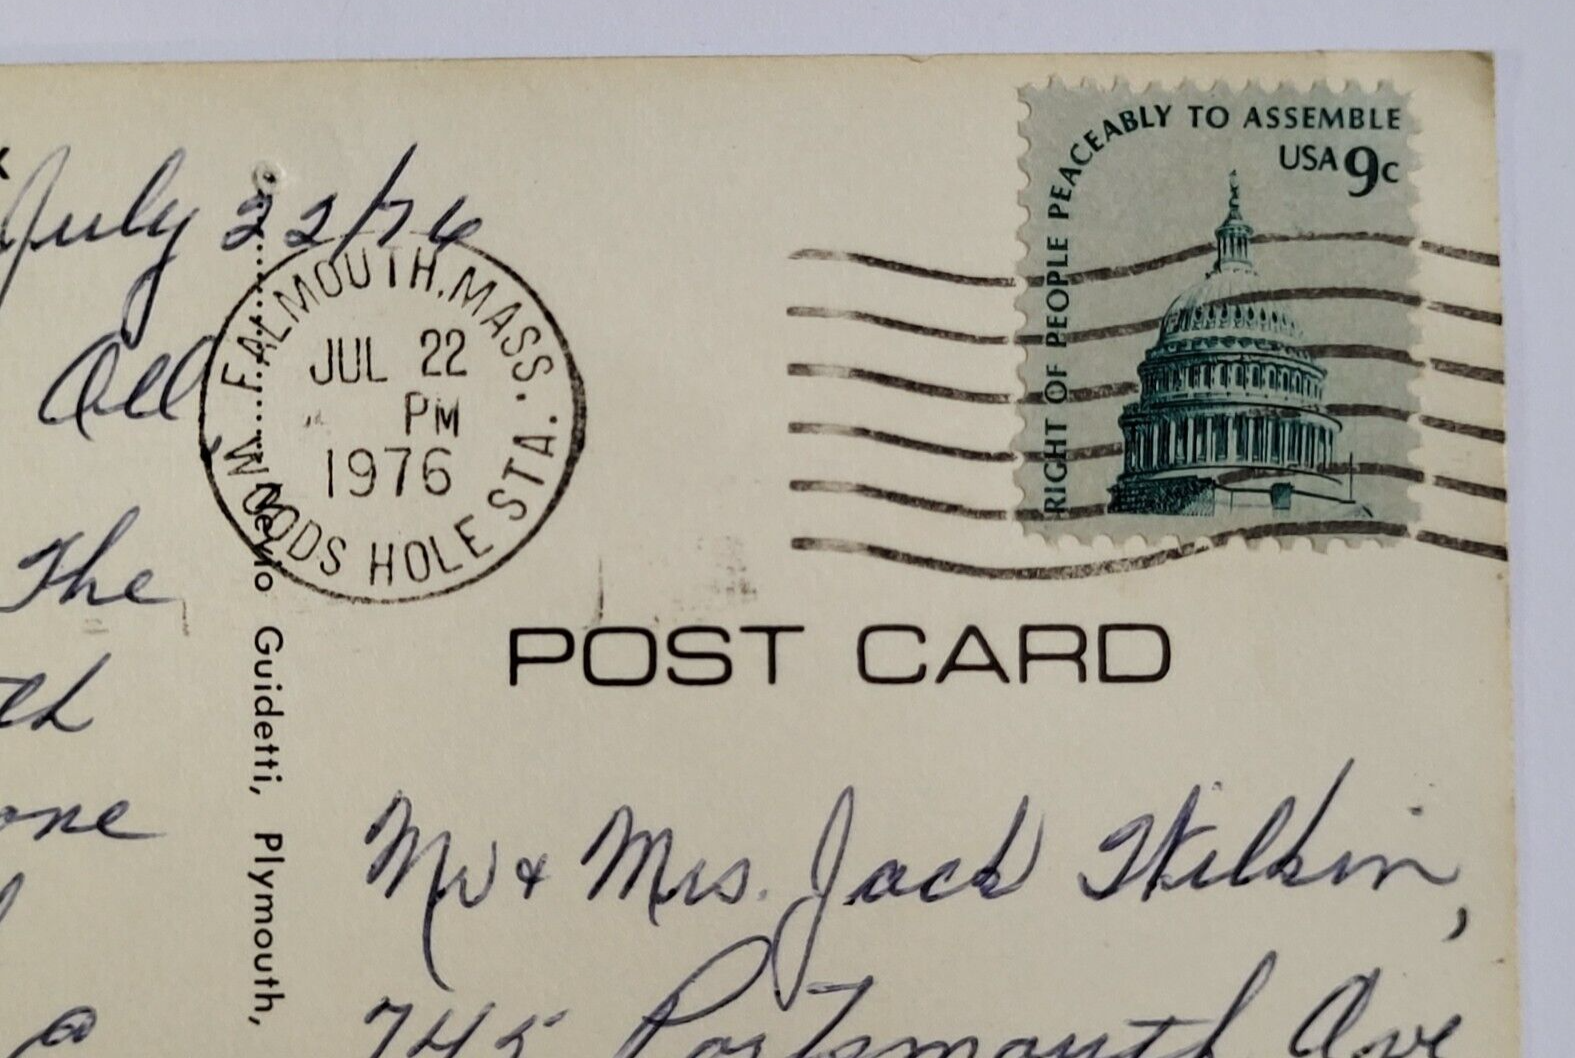 RIGHT OF PEOPLE PEACEABLY TO ASSEMBLE
USA 9c
July 22/76
FALMOUTH, MASS.
JUL 22
PM
1976
WOODS HOLE STA.
All,
The
one
a
Guidetti, Plymouth,
POST CARD
Mr & Mrs. Jack Wilkin,
745 Portsmouth Ave